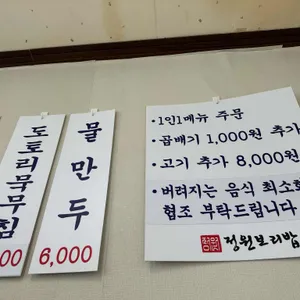 도토리묵무침
00
물만두
6,000
• 1인1메뉴 주문
• 곱배기 1,000원 추가
• 고기 추가 8,000원
• 버려지는 음식 최소화
협조 부탁드립니다
정원보리밥